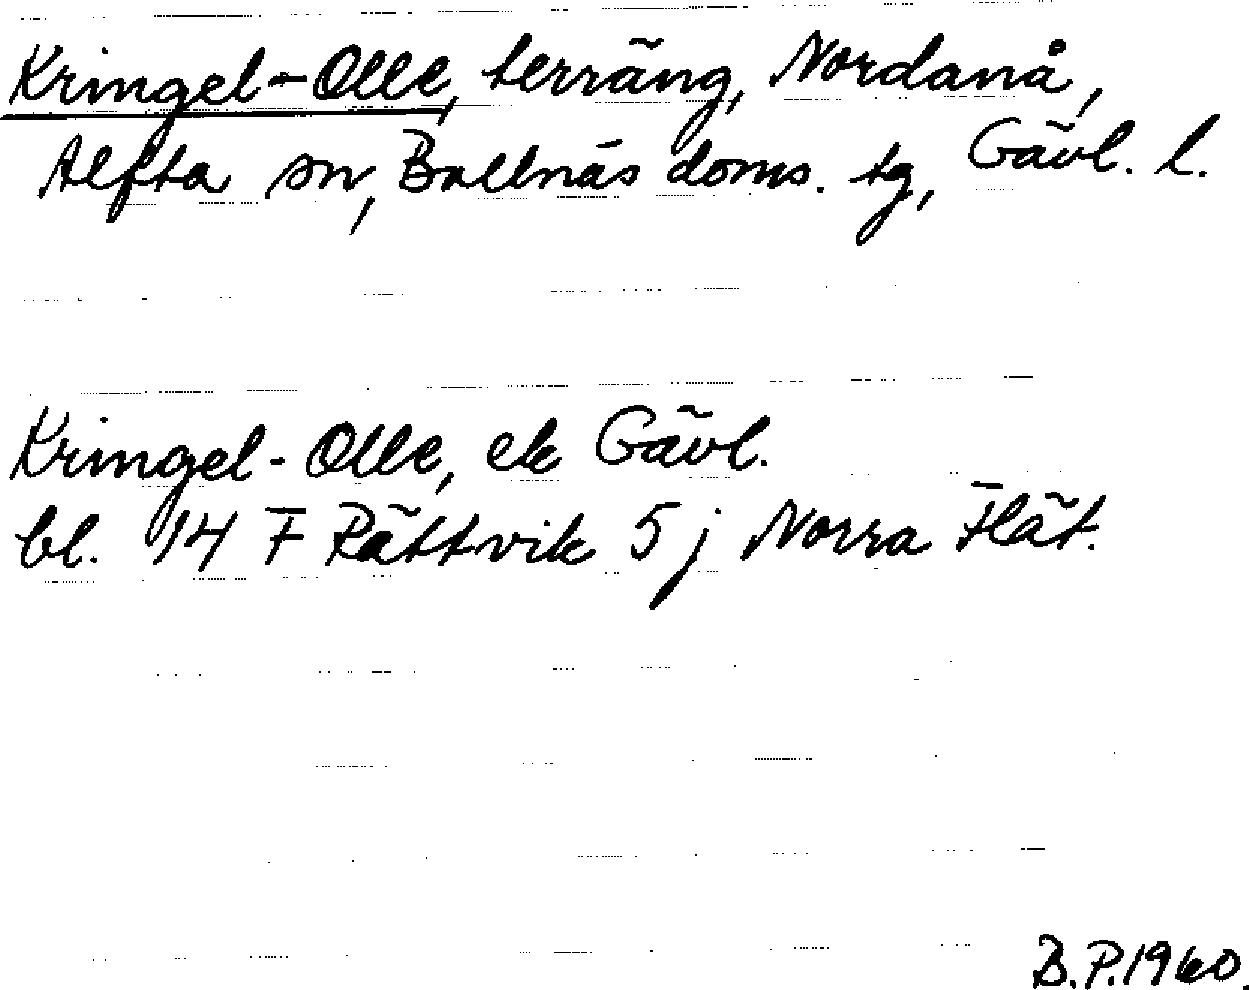 Kringel-Olle, terräng, Nordanå,
Alfta sn, Bollnäs doms. tg, Gävl. l.
Kringel-Olle, ek Gävl.
bl. 14 F Rättvik 5 j Norra Flät.
B.P.1960.